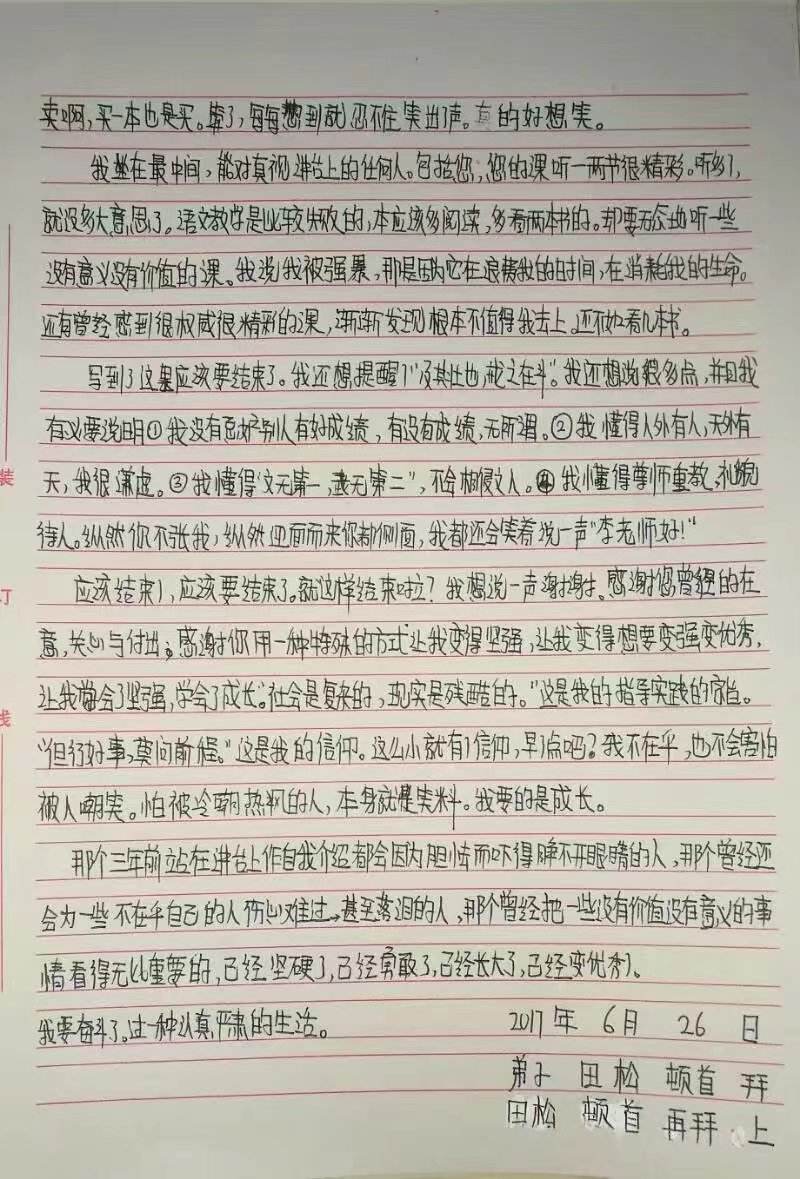 卖啊，买一本也是买。晕了，每每想到就忍不住笑出了声。真的好想笑。
我坐在最中间，能对直视讲台上的任何人。包括您，您的课听一两节很精彩。听多了，
就没多大意思了。语文教学是比较失败的，本应该多阅读，多看两本书的。却要无奈地听一些
没有意义没有价值的课。我说我被强暴，那是因为它在浪费我的时间，在消耗我的生命。
还有曾经感到很权威很精彩的课，渐渐发现根本不值得我去上。还不如看几本书。
写到了这里应该要结束了。我还想提醒了“及其壮也，戒之在斗”。我还想说很多点，并且我
有必要说明①我没有忌妒别人有好成绩，有没有成绩，无所谓。②我懂得人外有人，天外有
天，我很谦虚。③我懂得“文无第一，武无第二”，不会相侵文人。④我懂得尊师重教，礼貌
待人。纵然你不张我，纵然迎面而来你都侧面，我都还会笑着说一声“李老师好！”
应该结束了，应该要结束了。就这样结束吗？我想说一声谢谢。感谢您曾经的在
意，关心与付出。感谢你用一种特殊的方式让我变得坚强，让我变得想要变强变优秀，
让我学会了坚强，学会了成长。“社会是复杂的，现实是残酷的。”这是我的指导实践的
“但行好事，莫问前程。”这是我的信仰。这么小就有了信仰，早了点吧？我不在乎，也不会害怕
被人嘲笑。怕被冷嘲热讽的人，本身就是笑料。我要的是成长。
那个三年前站在讲台上作自我介绍都会因为胆怯而吓得睁不开眼睛的人，那个曾经还
会为一些不在乎自己的人伤心难过，甚至落泪的人，那个曾经把一些没有价值没有意义的事
情看得无比重要的，已经坚硬了，已经勇敢了，已经长大了，已经变优秀了。
我要奋斗了。过一种认真严肃的生活。
2017年 6月 26 日
弟子 田松 顿首 拜
田松 顿首 再拜 上
装
订
线